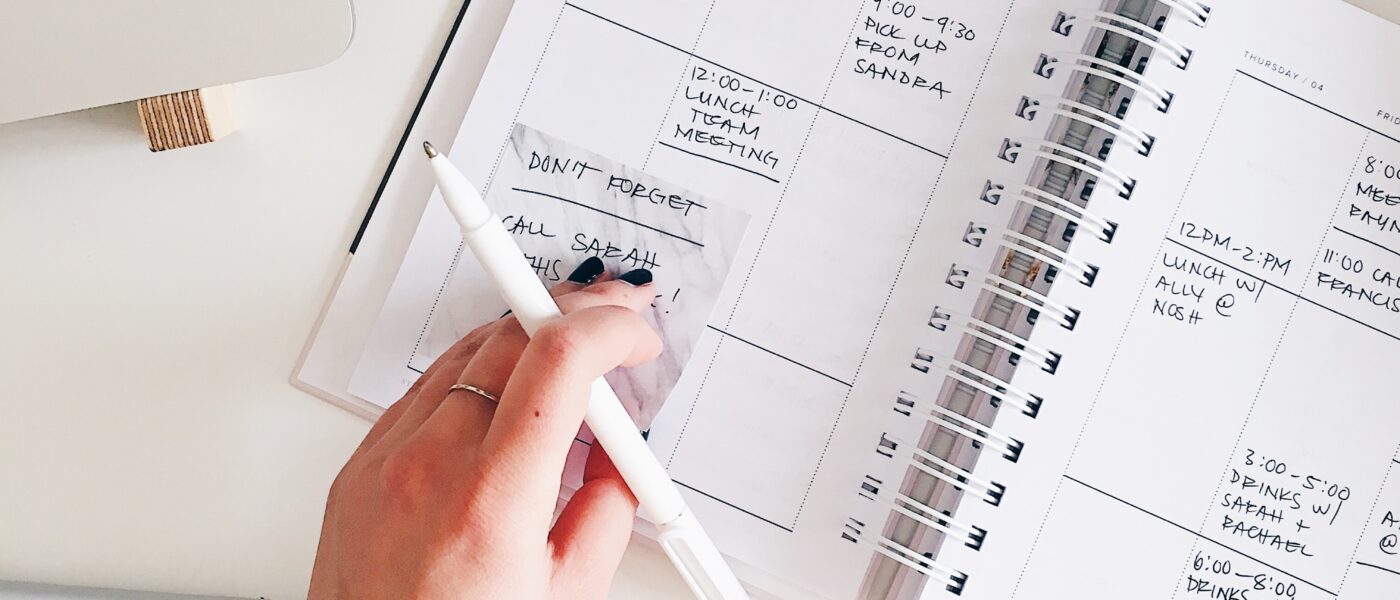 9:00-9:30
PICK UP
FROM
SANDRA
12:00-1:00
LUNCH
TEAM
MEETING
DON'T FORGET
CALL SARAH
THIS
!
THURSDAY / 04
12PM-2:PM
LUNCH W/
ALLY @
NOSH
8:0
11:00
3:00-5:00
DRINKS W/
SARAH +
RACHAEL
6:00-8:00
DRINKS
@